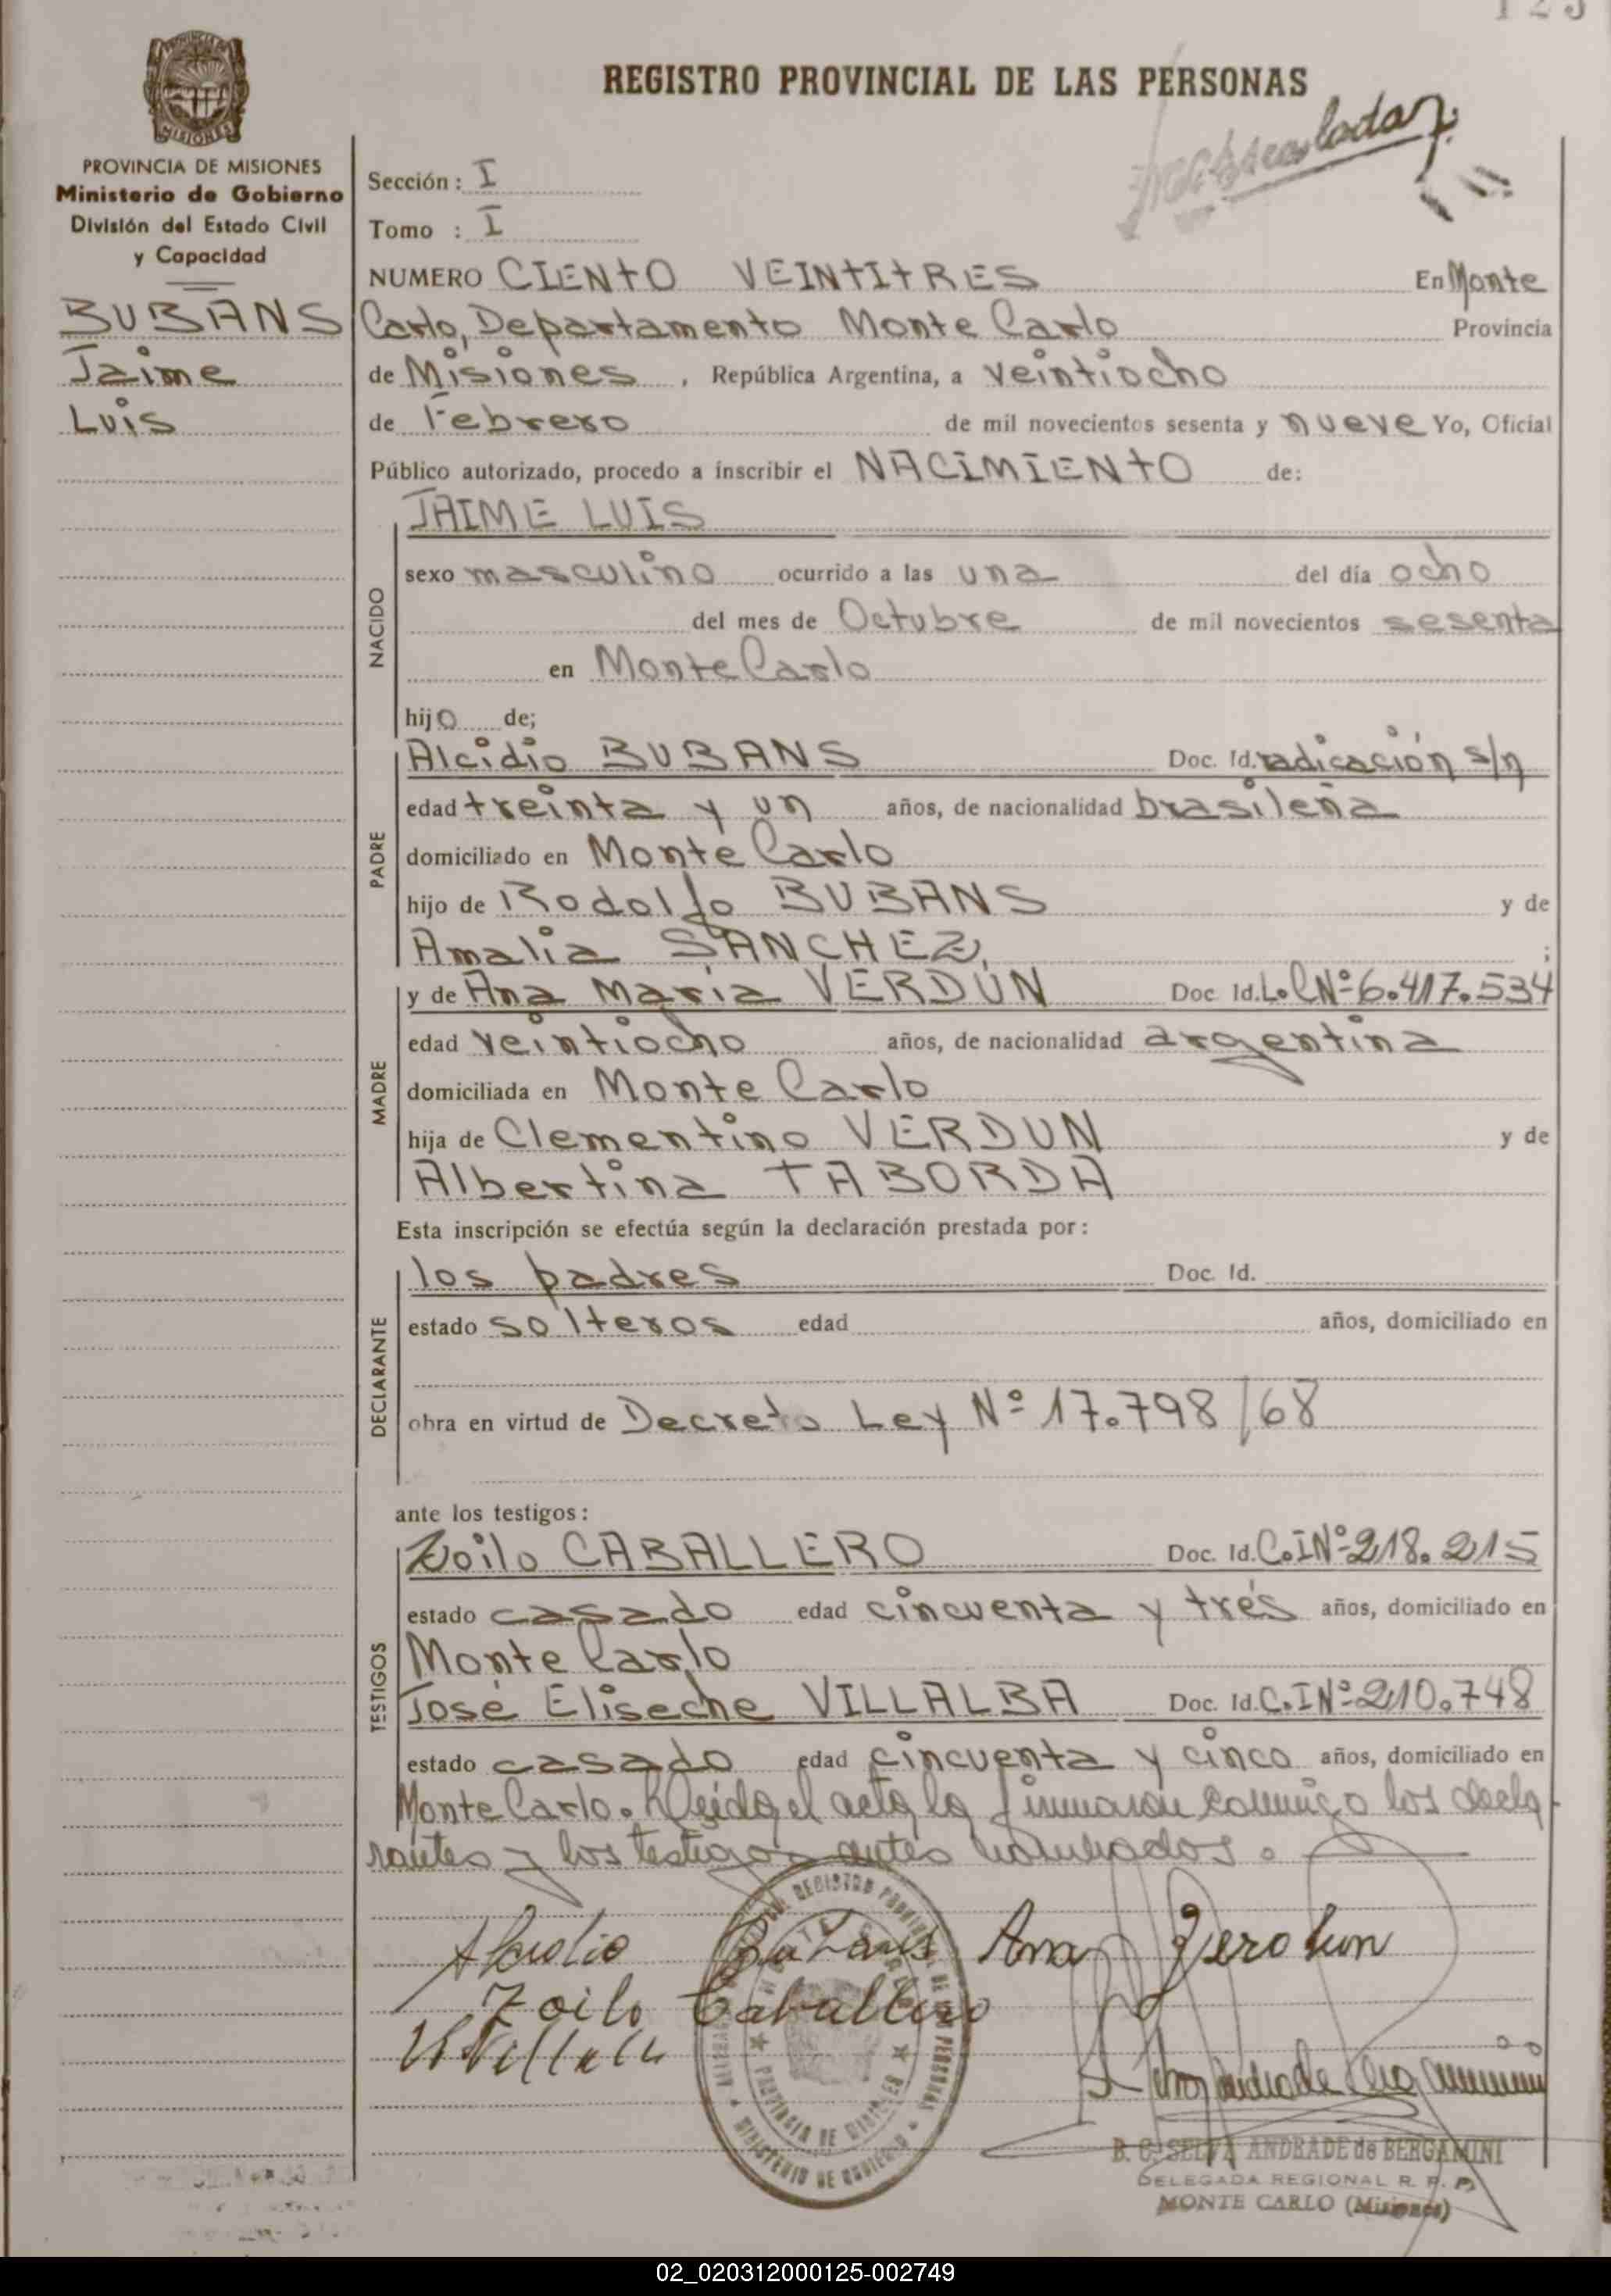 123
REGISTRO PROVINCIAL DE LAS PERSONAS
MISIONES
PROVINCIA DE MISIONES
Ministerio de Gobierno
División del Estado Civil
y Capacidad
BUBANS
Jaime
Luis
Sección: I
Tomo : I
NUMERO CIENTO VEINTITRES En Monte
Carlo, Departamento Monte Carlo Provincia
de Misiones, República Argentina, a veintiocho
de Febrero de mil novecientos sesenta y nueve Yo, Oficial
Público autorizado, procedo a inscribir el NACIMIENTO de:
JAIME LUIS
NACIDO
sexo masculino ocurrido a las una del día ocho
del mes de Octubre de mil novecientos sesenta
en Monte Carlo
hijo de;
PADRE
Alcidio BUBANS Doc. Id. radicación s/n
edad treinta y un años, de nacionalidad brasileña
domiciliado en Monte Carlo
hijo de Rodolfo BUBANS y de
Amalia SANCHEZ, ;
MADRE
y de Ana María VERDÚN Doc. Id. L.C Nº 6.417.534
edad veintiocho años, de nacionalidad argentina
domiciliada en Monte Carlo
hija de Clementino VERDUN y de
Albertina TABORDA
Esta inscripción se efectúa según la declaración prestada por:
DECLARANTE
los padres Doc. Id.
estado solteros edad años, domiciliado en
obra en virtud de Decreto Ley Nº 17.798/68
ante los testigos:
TESTIGOS
Zoilo CABALLERO Doc. Id. C.I Nº 218.215
estado casado edad cincuenta y trés años, domiciliado en
Monte Carlo
José Eliseche VILLALBA Doc. Id. C.I Nº 210.748
estado casado edad cincuenta y cinco años, domiciliado en
Monte Carlo. Leída el acta la firmaron conmigo los decla
rantes y los testigos antes nombrados.
Alcidio Bubans Ana Verdun
Zoilo Caballero
REGISTRO PROVINCIAL DE LAS PERSONAS
MONTE CARLO
PROVINCIA DE MISIONES
MINISTERIO DE GOBIERNO
B. C. SELVA ANDRADE de BERGAMINI
DELEGADA REGIONAL R. P. P.
MONTE CARLO (Misiones)
02_020312000125-002749